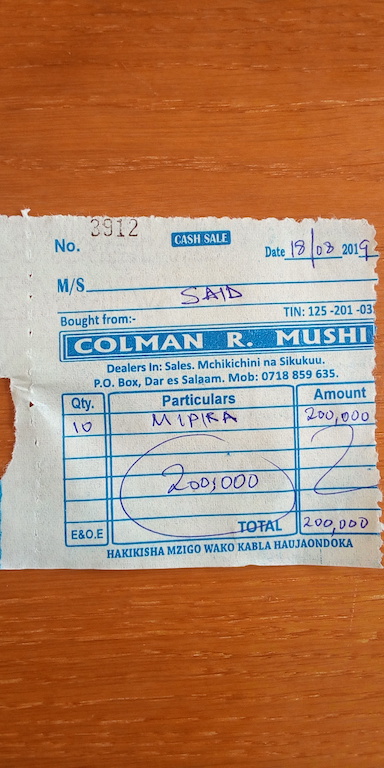 3912
No. CASH SALE Date 18/08 2019
M/S. SAID
Bought from:- TIN: 125-201-03
COLMAN R. MUSHI
Dealers In: Sales. Mchikichini na Sikukuu.
P.O. Box, Dar es Salaam. Mob: 0718 859 635.
Qty. Particulars Amount
10 MIPIRA 200,000
200,000
E&O.E TOTAL 200,000
HAKIKISHA MZIGO WAKO KABLA HAUJAONDOKA